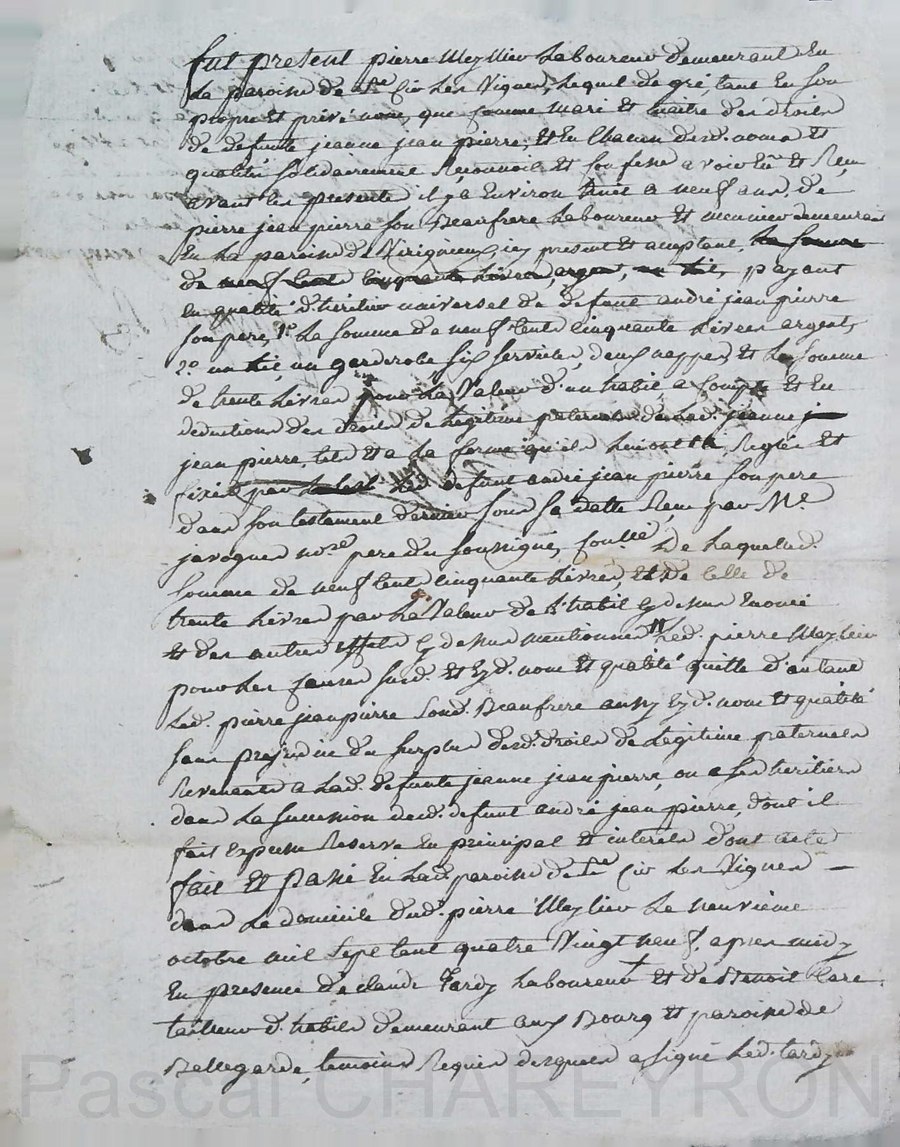 fut present pierre Meylieu Laboureur demeurant En
La paroisse de St Cir Les Vignes, Lequel de gré, tant En son
propre Et privé nom, que comme mari et maitre des droits
de defunte jeanne jean pierre, Et En Chacun desd. noms et
qualités solidairement Reconnoit Et Confesse avoir Eu Et Reçu
avant Les presentes il y a Environ huit a neuf ans, de
pierre jean pierre son Beaufrere Laboureur Et meunier demeurant
En La paroisse de Virigneux, icy present Et aceptant, La somme
de neuf Cent Cinquante Livres, argent, un lit, payant
En qualité d'heritier universel de defunt andré jean pierre
son pere, 1° La somme de neuf Cents Cinquante Livres argent,
2° un Lit, un garderobe six serviettes, deux nappes, Et La somme
de trente Livres pour La Valeur d'un habit, a Compte Et En
deduction des droits de Legitime paternels de Lad. jeanne j
jean pierre, tels Et a La forme qu'ils Lui ont été, Reglés Et
fixés par Led. defunt andré jean pierre son pere
dans son testament dernier sous sa datte Reçu par Me.
javogues nore pere du soussigné, De Laquelle d.
somme de neuf Cent Cinquante Livres, Et de Celle de
trente Livres par La Valeur de L'habit Cy dessus Enoncé
Et des autres Effets Cy dessus mentionnés Led. pierre Meylieu
pour Les Causes susd. Et Esd. nom Et qualité quitte d'autant
Led. pierre jean pierre sond. Beaufrere aussy Esd. nom Et qualité
sans prejudice du surplus desd. droits de Legitime paternels
Revenants a Lad. defunte jeanne jean pierre, ou a ses heritiers
dans La succession dud. defunt andré jean pierre, dont il
fait Expresse Reserve En principal Et interets dont acte
fait Et passé En Lad. paroisse de St Cir Les Vignes
dans Le domicile dud. pierre Meylieu Le neuvieme
octobre mil sept Cent quatre Vingt neuf, apres midy
En presence de Claude Tardy Laboureur Et de Benoit Clare
tailleur d'habits demeurant aux Bourg Et paroisse de
Bellegarde, temoins Requis desquels a signé Led. tardy
Pascal CHAREYRON